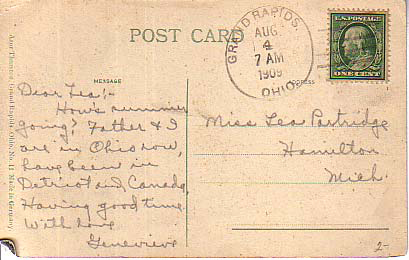 POST CARD
GRAND RAPIDS.
AUG
4
7 AM
1909
OHIO.
U.S. POSTAGE
ONE CENT
MESSAGE
Dear Lea:-
How's summer
going? Father & I
are in Ohio now,
have been in
Detriot and Canada,
Having good time.
With love
Genevieve
Miss Lea Partridge
Hamilton
Mich.
2-
Grand Rapids, Ohio. No. 11 Made in Germany.